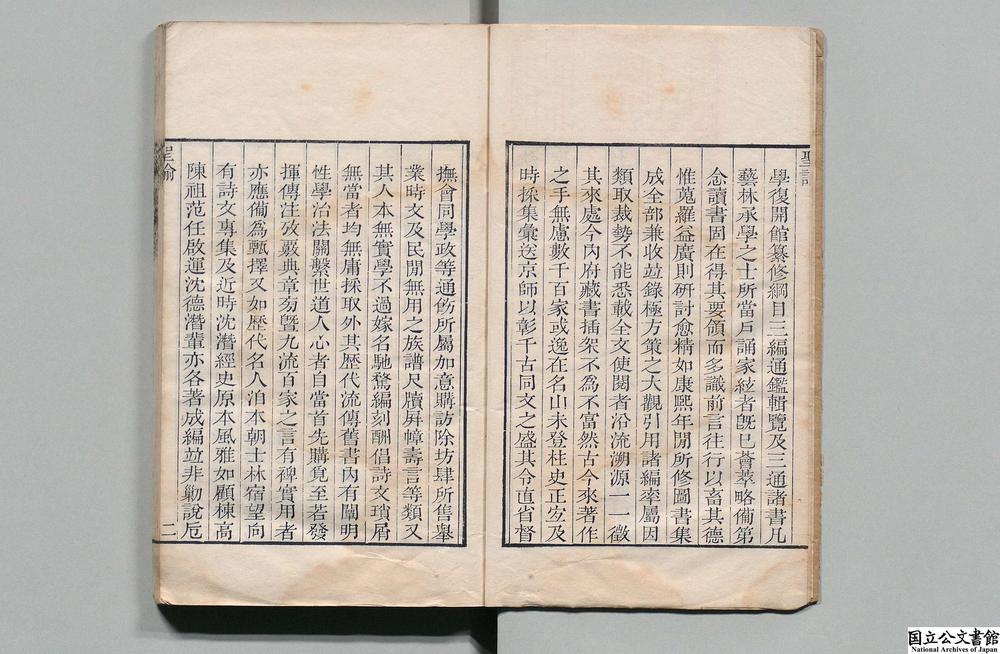 聖諭
學復開館纂修綱目三編通鑑輯覽及三通諸書凡
藝林承學之士所當戶誦家絃者旣已薈萃略備第
念讀書固在得其要領而多識前言往行以畜其德
惟蒐羅益廣則硏討愈精如康熙年閒所修圖書集
成全部兼收竝錄極方策之大觀引用諸編率屬因
類取裁勢不能悉載全文使閱者沿流溯源一一徵
其來處今內府藏書插架不爲不富然古今來著作
之手無慮數千百家或逸在名山未登柱史正宐及
時採集彙送京師以彰千古同文之盛其令直省督
撫會同學政等通飭所屬加意購訪除坊肆所售舉
業時文及民閒無用之族譜尺牘屛幛壽言等類又
其人本無實學不過嫁名馳騖編刻酬倡詩文瑣屑
無當者均無庸採取外其歷代流傳舊書內有闡明
性學治法關繫世道人心者自當首先購覓至若發
揮傳注攷覈典章匇曁九流百家之言有裨實用者
亦應備爲甄擇又如歷代名人洎本朝士林宿望向
有詩文專集及近時沈潛經史原本風雅如顧棟高
陳祖范任啟運沈德潛輩亦各著成編竝非勦說卮
聖諭
二
国立公文書館
National Archives of Japan